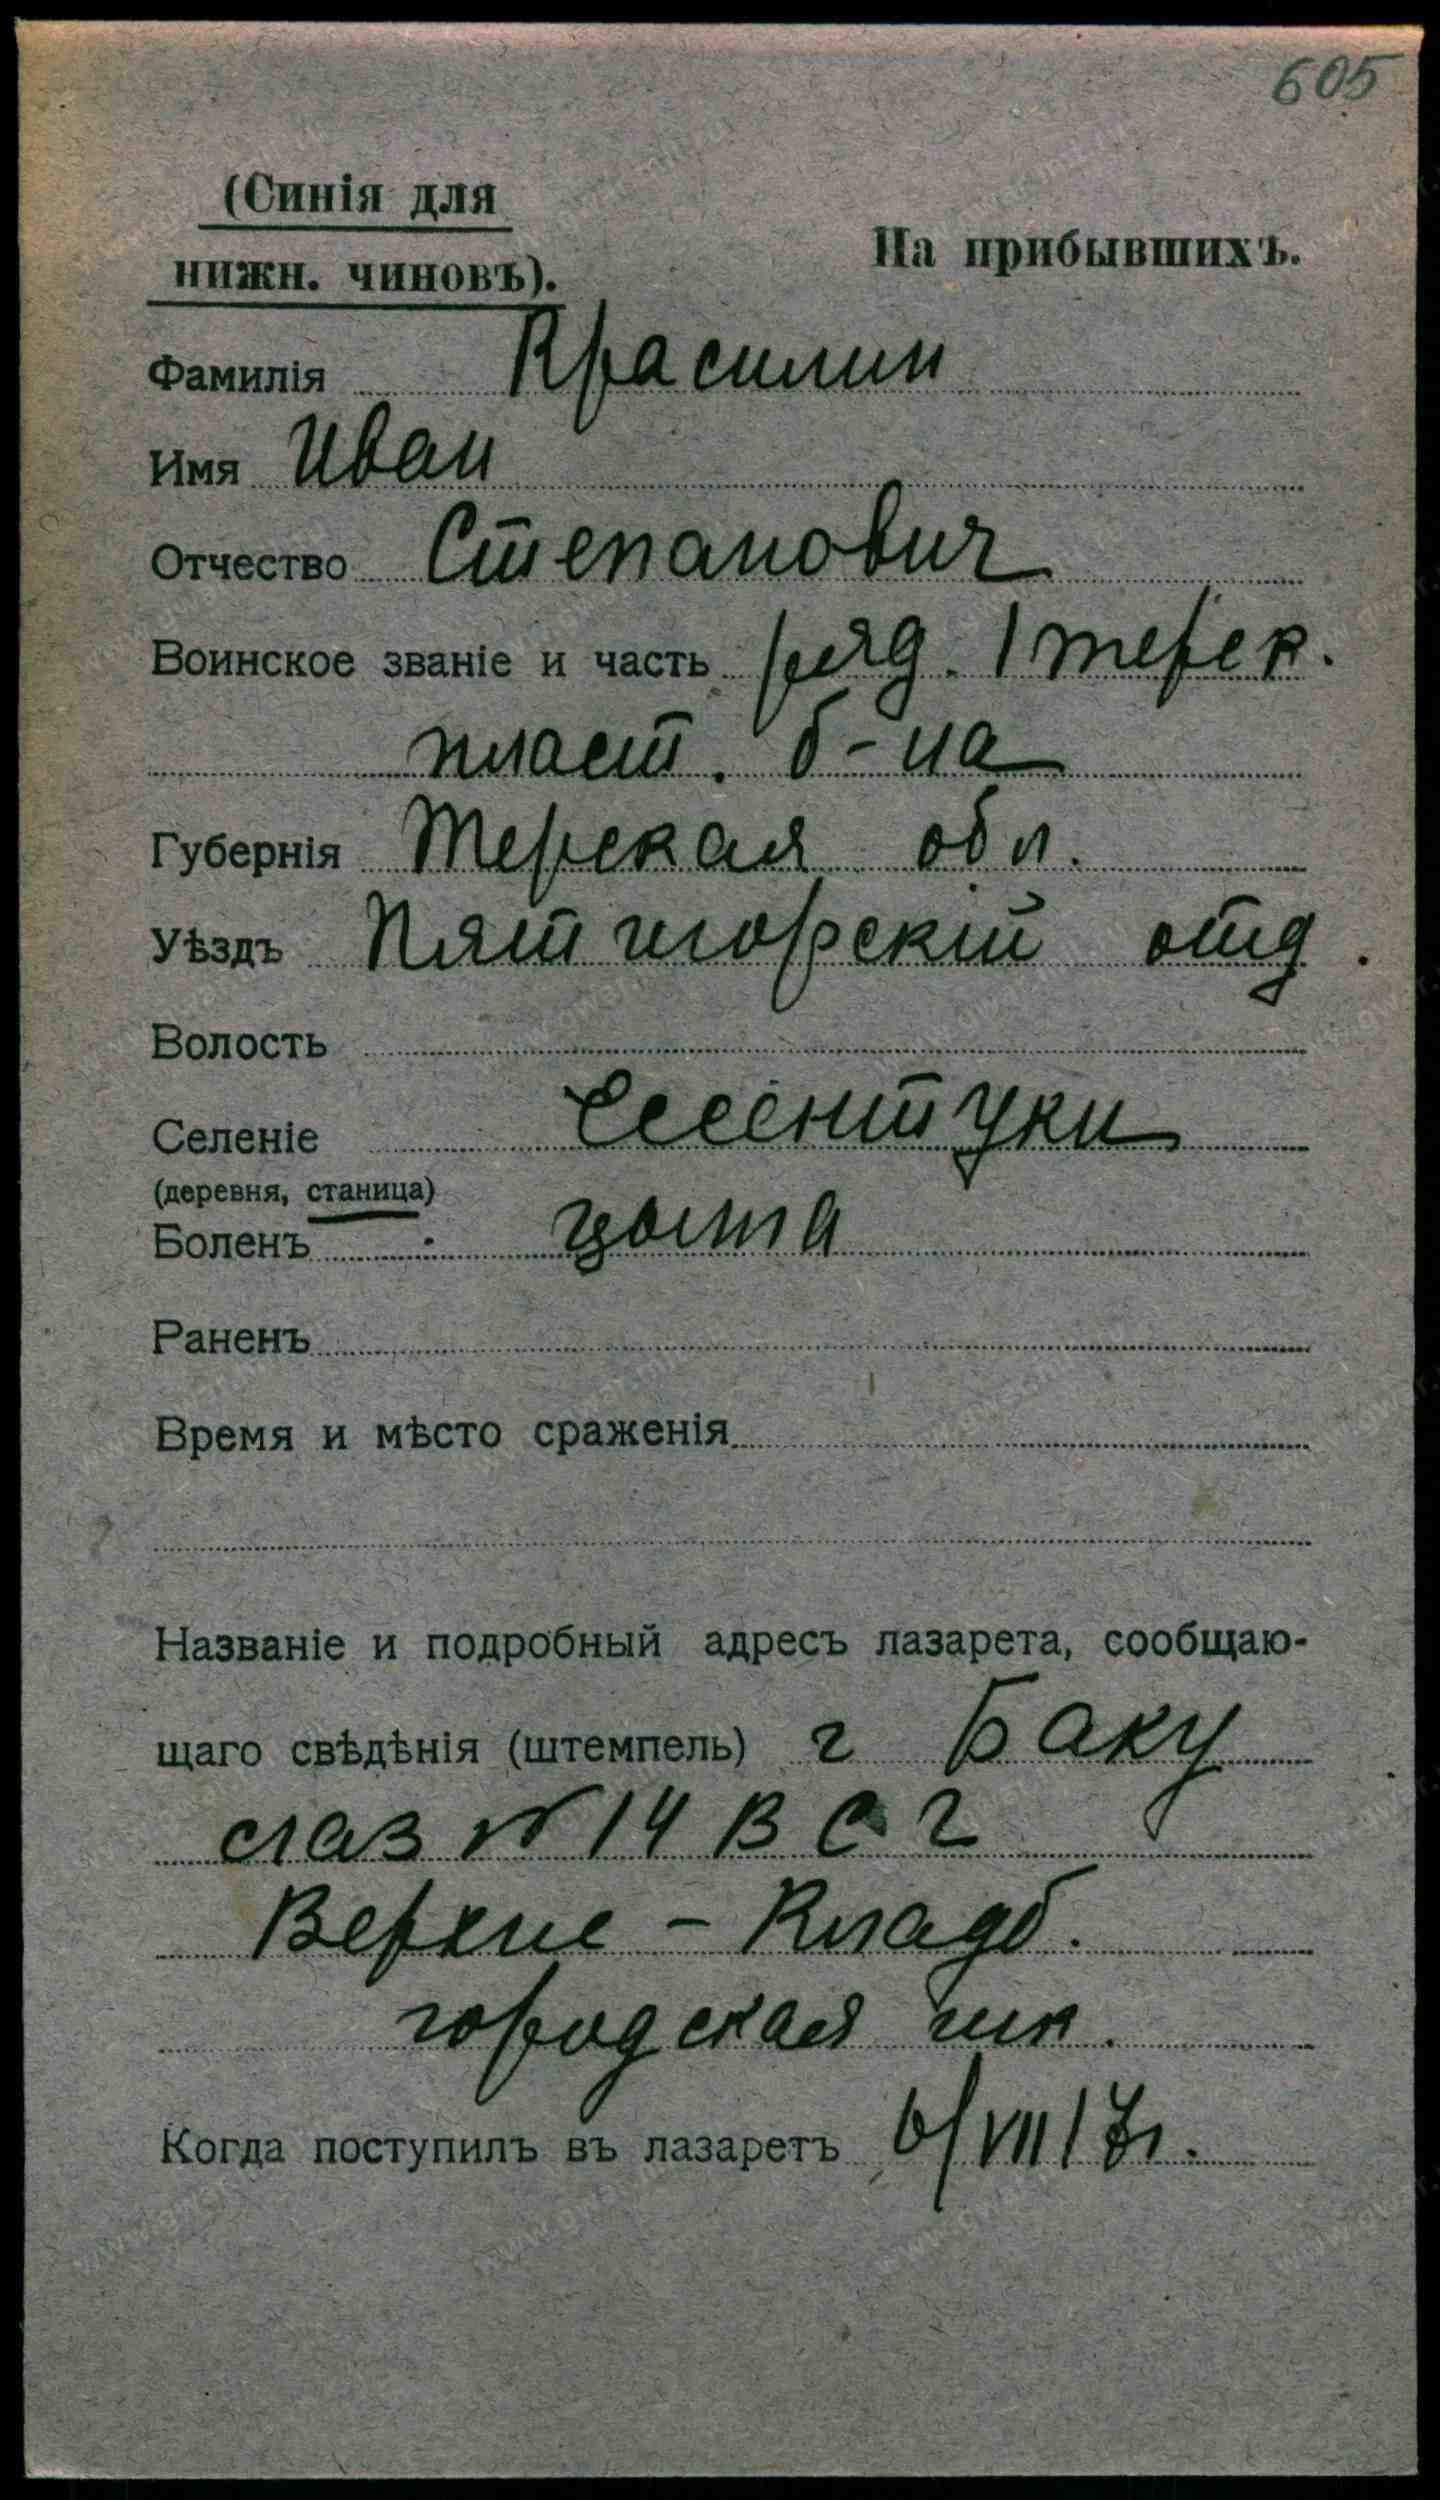 605
(Синія для
нижн. чиновъ).
На прибывшихъ.
Фамилія Красилин
Имя Иван
Отчество Степанович
Воинское званіе и часть ряд. 1 терек.
пласт. б-на
Губернія Терская обл.
Уѣздъ Пятигорскій отд.
Волость
Селеніе Ессентуки
(деревня, станица)
Боленъ цынга
Раненъ
Время и мѣсто сраженія
Названіе и подробный адресъ лазарета, сообщаю-
щаго свѣдѣнія (штемпель) г Баку
лаз № 14 В С Г
Верхне - Кладб.
городская шк.
Когда поступилъ въ лазаретъ 6/VII 17 г.